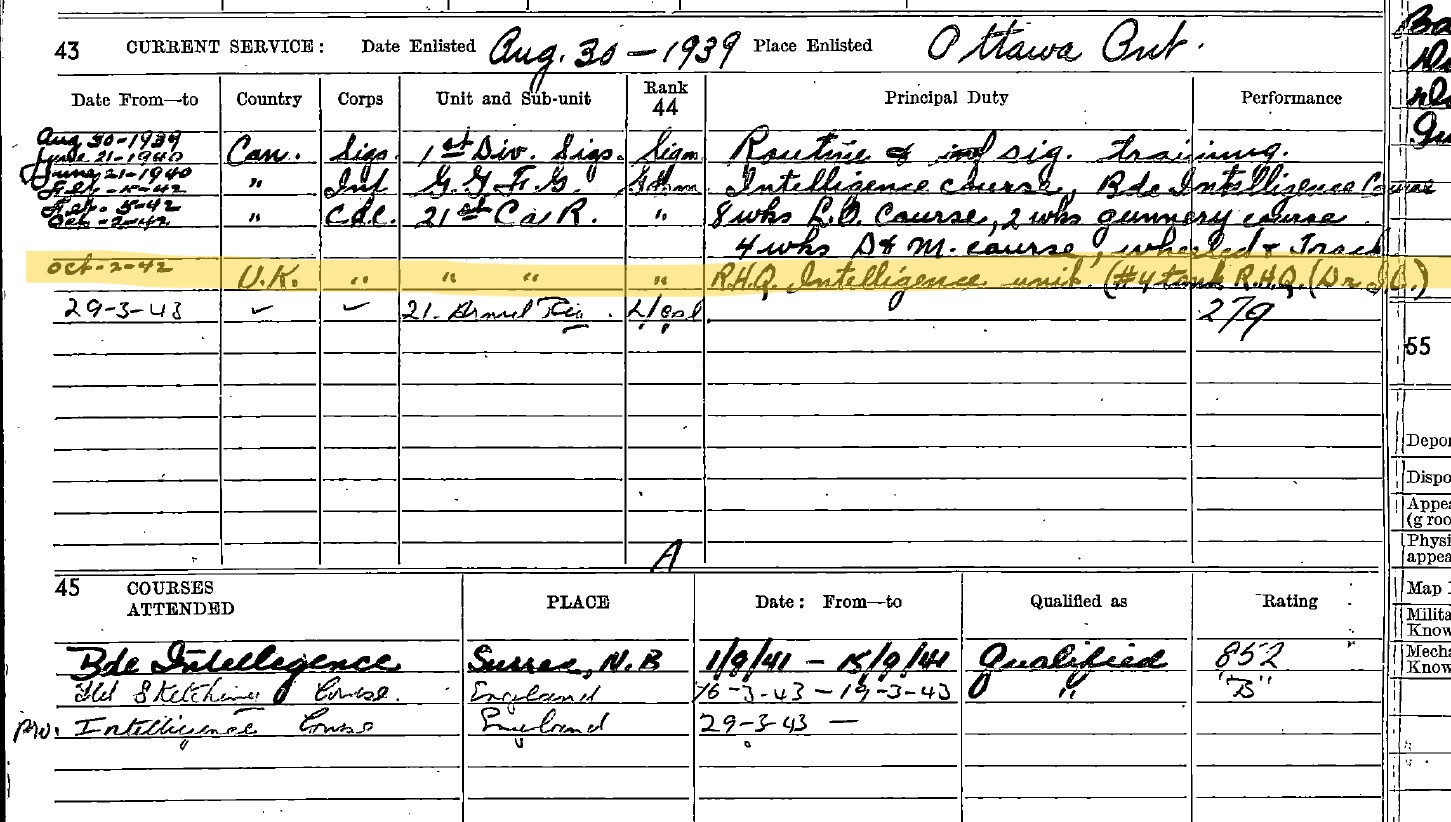 43 CURRENT SERVICE: Date Enlisted Aug. 30-1939 Place Enlisted Ottawa Ont.
Date From—to Country Corps Unit and Sub-unit Rank 44 Principal Duty Performance
Aug 30-1939
June 21-1940 Can. Sigs. 1st Div. Sigs. Sigm Routine & sig. training.
June 21-1940
Feb. -5-42 " Inf G.G.F.G. Intelligence course, Bde Intelligence Course
Feb. 5-42
Oct-2-42 " C.A.C. 21st Ca R. " 8 wks course, 2 wks gunnery course.
4 wks D & M. course, wheeled & Track
Oct-2-42 U.K. " " " " R.H.Q. Intelligence unit. (#4 tank R.H.Q.
29-3-43 ✓ ✓ 21. L/Cpl 279
A
55
Depor
Dispo
Appea
(groo
Physi
appea
Map
Milita
Know
Mecha
Know
45 COURSES ATTENDED PLACE Date: From—to Qualified as Rating
Bde Intellegence Sussex, N.B 1/9/41 - 15/9/41 Qualified 852
Sketching Course. England 16-3-43 - 19-3-43 " "B"
Intelligence Course England 29-3-43 —